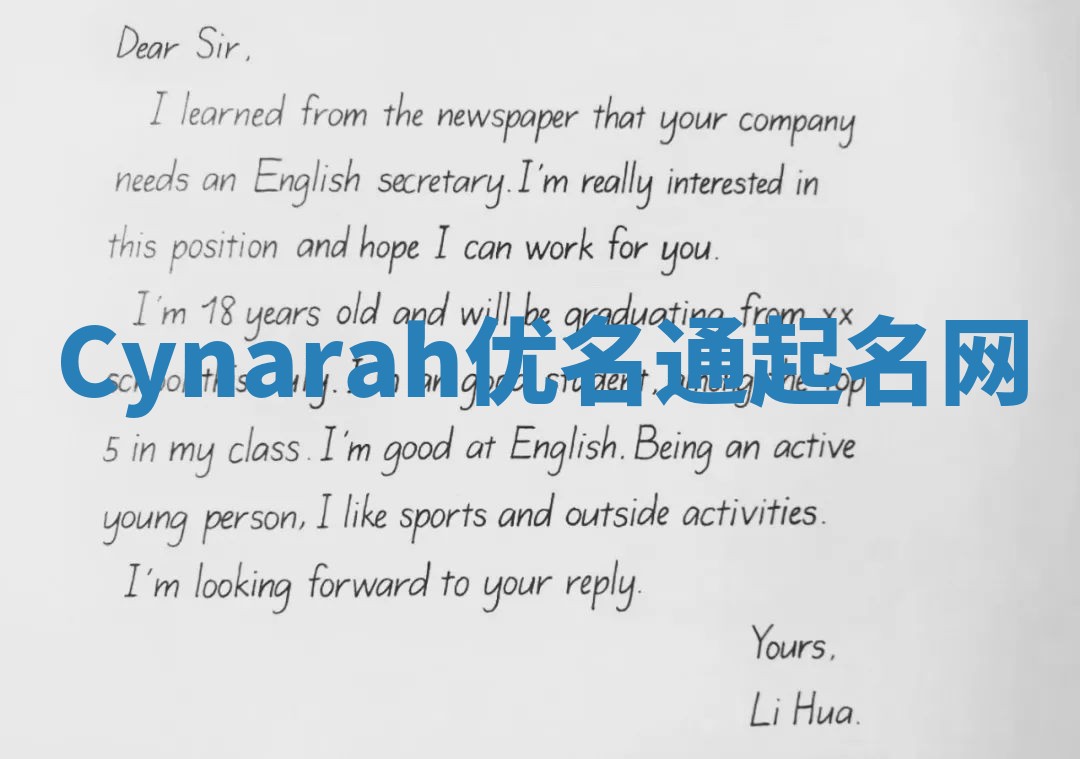 Dear Sir,
I learned from the newspaper that your company
needs an English secretary. I'm really interested in
this position and hope I can work for you.
I'm 18 years old and will be graduating from xx
Cynarah优名通起名网
school this July. I'm an good student, among the top
5 in my class. I'm good at English. Being an active
young person, I like sports and outside activities.
I'm looking forward to your reply.
Yours,
Li Hua.